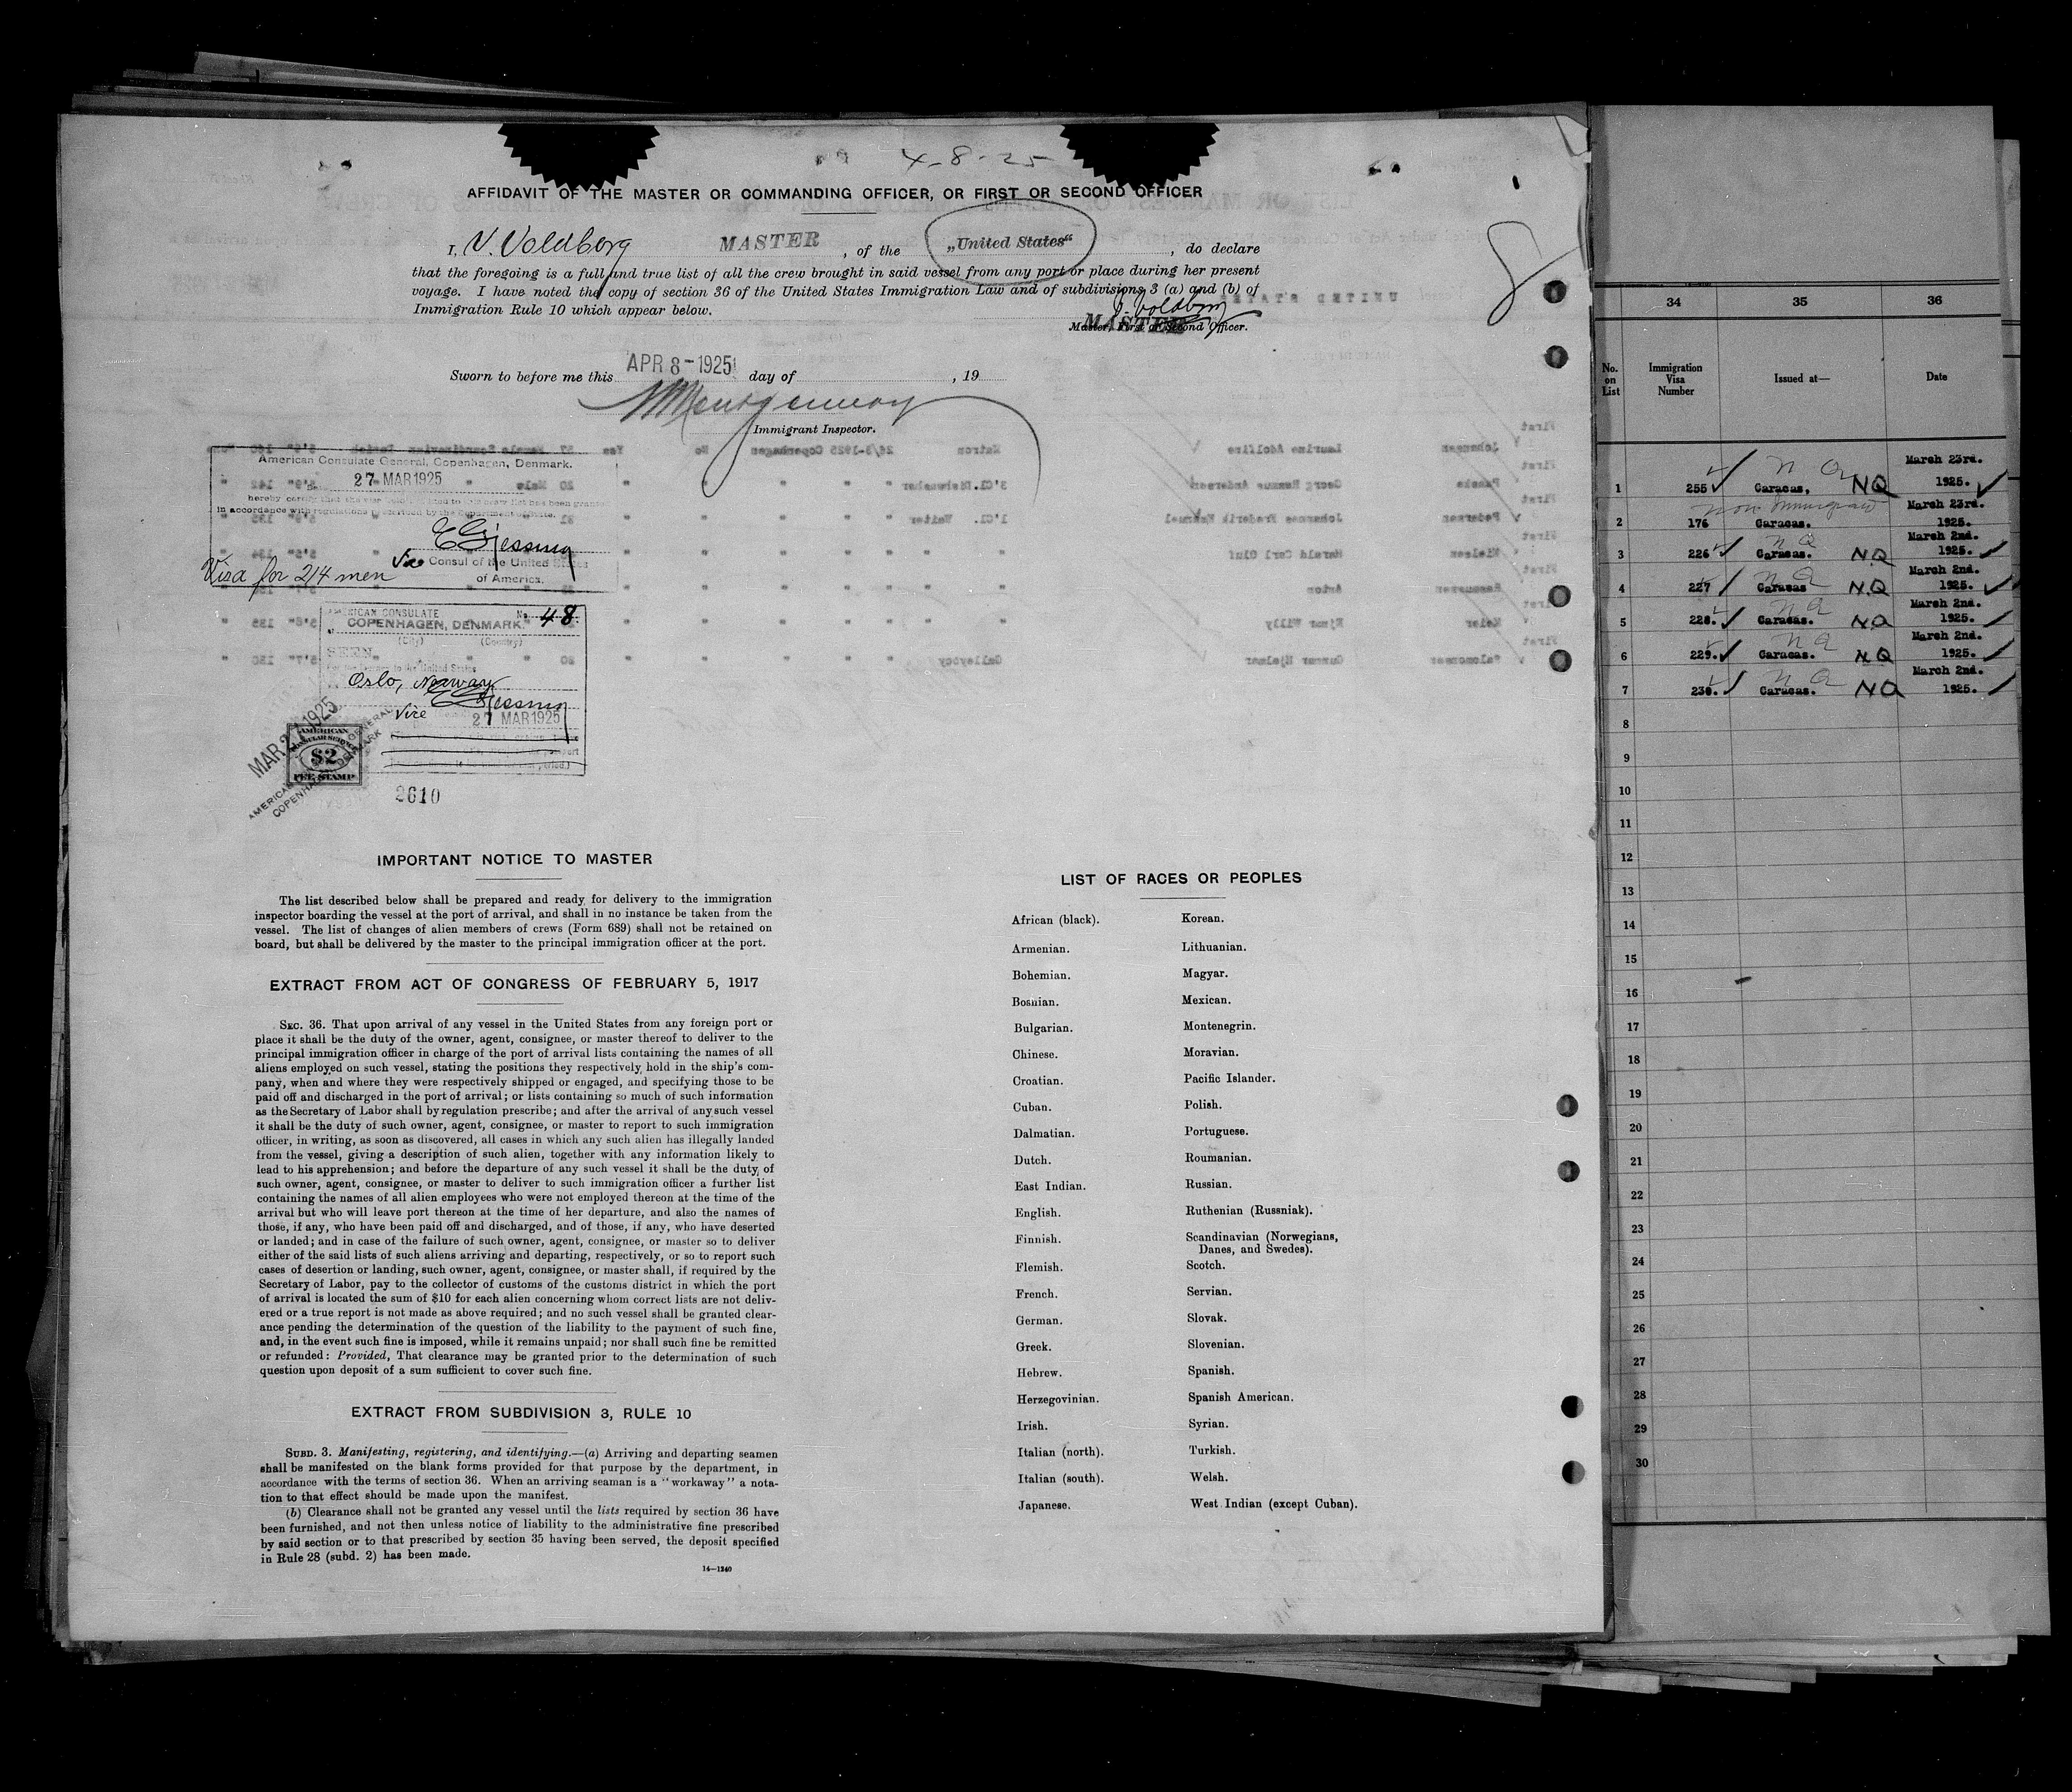 4-8-25
AFFIDAVIT OF THE MASTER OR COMMANDING OFFICER, OR FIRST OR SECOND OFFICER
I, V. Voldborg MASTER, of the „United States“, do declare
that the foregoing is a full and true list of all the crew brought in said vessel from any port or place during her present
voyage. I have noted the copy of section 36 of the United States Immigration Law and of subdivisions 3 (a) and (b) of
Immigration Rule 10 which appear below.
V. Voldborg
MASTER
Master, First or Second Officer.
8
Sworn to before me this APR 8-1925 day of , 19
Montgomery
Immigrant Inspector.
American Consulate General, Copenhagen, Denmark.
27 MAR 1925
in accordance with regulations
E Gjessing
Vice Consul of the United States
of America.
Visa for 214 men
AMERICAN CONSULATE No. 48
COPENHAGEN, DENMARK.
(City) (Country)
SEEN
Oslo, Norway
E Gjessing
Vice 27 MAR 1925
MAR 27 1925
AMERICAN
CONSULAR SERVICE
$2
FEE STAMP
2610
IMPORTANT NOTICE TO MASTER
The list described below shall be prepared and ready for delivery to the immigration
inspector boarding the vessel at the port of arrival, and shall in no instance be taken from the
vessel. The list of changes of alien members of crews (Form 689) shall not be retained on
board, but shall be delivered by the master to the principal immigration officer at the port.
EXTRACT FROM ACT OF CONGRESS OF FEBRUARY 5, 1917
SEC. 36. That upon arrival of any vessel in the United States from any foreign port or
place it shall be the duty of the owner, agent, consignee, or master thereof to deliver to the
principal immigration officer in charge of the port of arrival lists containing the names of all
aliens employed on such vessel, stating the positions they respectively hold in the ship's com-
pany, when and where they were respectively shipped or engaged, and specifying those to be
paid off and discharged in the port of arrival; or lists containing so much of such information
as the Secretary of Labor shall by regulation prescribe; and after the arrival of any such vessel
it shall be the duty of such owner, agent, consignee, or master to report to such immigration
officer, in writing, as soon as discovered, all cases in which any such alien has illegally landed
from the vessel, giving a description of such alien, together with any information likely to
lead to his apprehension; and before the departure of any such vessel it shall be the duty of
such owner, agent, consignee, or master to deliver to such immigration officer a further list
containing the names of all alien employees who were not employed thereon at the time of the
arrival but who will leave port thereon at the time of her departure, and also the names of
those, if any, who have been paid off and discharged, and of those, if any, who have deserted
or landed; and in case of the failure of such owner, agent, consignee, or master so to deliver
either of the said lists of such aliens arriving and departing, respectively, or so to report such
cases of desertion or landing, such owner, agent, consignee, or master shall, if required by the
Secretary of Labor, pay to the collector of customs of the customs district in which the port
of arrival is located the sum of $10 for each alien concerning whom correct lists are not deliv-
ered or a true report is not made as above required; and no such vessel shall be granted clear-
ance pending the determination of the question of the liability to the payment of such fine,
and, in the event such fine is imposed, while it remains unpaid; nor shall such fine be remitted
or refunded: Provided, That clearance may be granted prior to the determination of such
question upon deposit of a sum sufficient to cover such fine.
EXTRACT FROM SUBDIVISION 3, RULE 10
SUBD. 3. Manifesting, registering, and identifying.—(a) Arriving and departing seamen
shall be manifested on the blank forms provided for that purpose by the department, in
accordance with the terms of section 36. When an arriving seaman is a "workaway" a nota-
tion to that effect should be made upon the manifest.
(b) Clearance shall not be granted any vessel until the lists required by section 36 have
been furnished, and not then unless notice of liability to the administrative fine prescribed
by said section or to that prescribed by section 35 having been served, the deposit specified
in Rule 28 (subd. 2) has been made.
14—1240
LIST OF RACES OR PEOPLES
African (black). Korean.
Armenian. Lithuanian.
Bohemian. Magyar.
Bosnian. Mexican.
Bulgarian. Montenegrin.
Chinese. Moravian.
Croatian. Pacific Islander.
Cuban. Polish.
Dalmatian. Portuguese.
Dutch. Roumanian.
East Indian. Russian.
English. Ruthenian (Russniak).
Finnish. Scandinavian (Norwegians,
Danes, and Swedes).
Flemish. Scotch.
French. Servian.
German. Slovak.
Greek. Slovenian.
Hebrew. Spanish.
Herzegovinian. Spanish American.
Irish. Syrian.
Italian (north). Turkish.
Italian (south). Welsh.
Japanese. West Indian (except Cuban).
34 35 36
No. on List Immigration Visa Number Issued at— Date
1 255 Caracas, NQ March 23rd. 1925.
2 176 Non Immigrant Caracas. March 23rd. 1925.
3 226 NQ Caracas. N.Q March 2nd. 1925.
4 227 NQ Caracas N.Q March 2nd. 1925.
5 228. NQ Caracas. N.Q March 2nd. 1925.
6 229. NQ Caracas. NQ March 2nd. 1925.
7 230. NQ Caracas. NQ March 2nd. 1925.
8
9
10
11
12
13
14
15
16
17
18
19
20
21
22
23
24
25
26
27
28
29
30